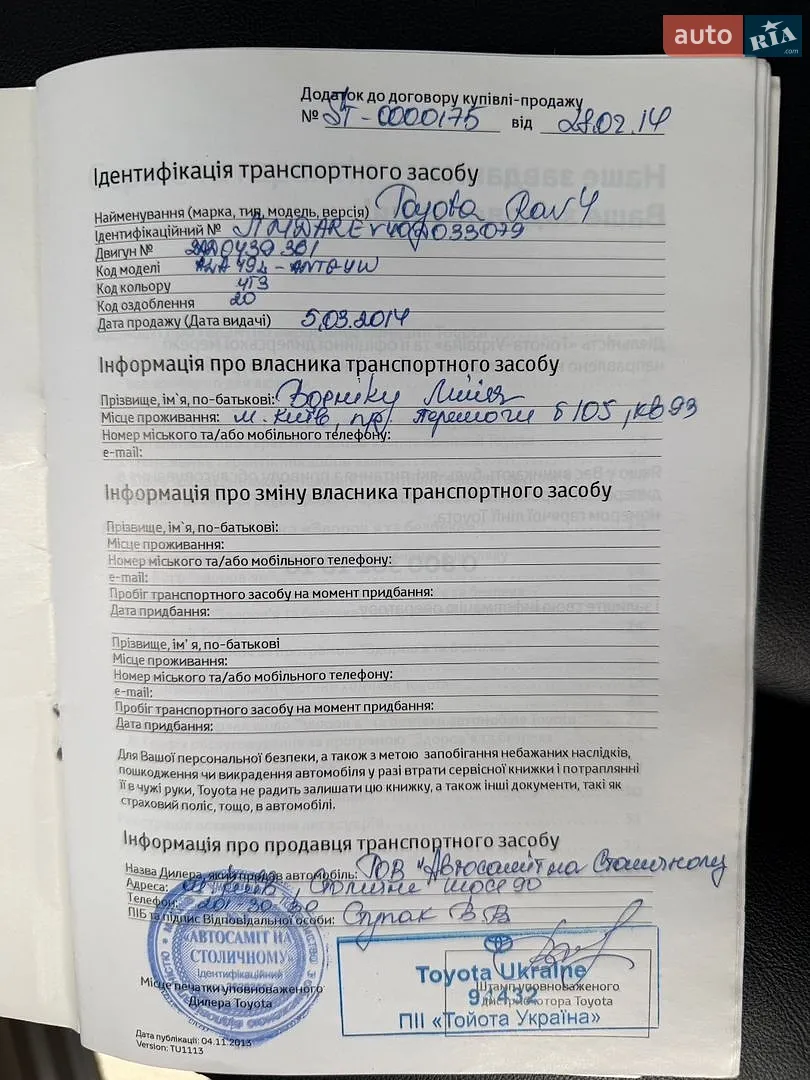 auto RIA .com
Додаток до договору купівлі-продажу
№ ST-0000175 від 28.02.14
Ідентифікація транспортного засобу
Найменування (марка, тип, модель, версія) Toyota Rav 4
Ідентифікаційний №
Двигун №
Код моделі
Код кольору 4T3
Код оздоблення 20
Дата продажу (Дата видачі) 5.03.2014
Інформація про власника транспортного засобу
Прізвище, ім`я, по-батькові:
Місце проживання: м. Київ, пр. Перемоги б 105, кв 93
Номер міського та/або мобільного телефону:
e-mail:
Інформація про зміну власника транспортного засобу
Прізвище, ім`я, по-батькові:
Місце проживання:
Номер міського та/або мобільного телефону:
e-mail:
Пробіг транспортного засобу на момент придбання:
Дата придбання:
Прізвище, ім`я, по-батькові
Місце проживання:
Номер міського та/або мобільного телефону:
e-mail:
Пробіг транспортного засобу на момент придбання:
Дата придбання:
Для Вашої персональної безпеки, а також з метою запобігання небажаних наслідків,
пошкодження чи викрадення автомобіля у разі втрати сервісної книжки і потраплянні
її в чужі руки, Toyota не радить залишати цю книжку, а також інші документи, такі як
страховий поліс, тощо, в автомобілі.
Інформація про продавця транспортного засобу
Назва Дилера, який продав автомобіль: ТОВ "Автосаміт на Столичному
Адреса: м. Київ, Столичне шосе 90
Телефон: 201 30 30
ПІБ та підпис Відповідальної особи:
«АВТОСАМІТ НА
СТОЛИЧНОМУ»
Ідентифікаційний
Місце печатки уповноваженого
Дилера Toyota
Toyota Ukraine
ПІІ «Тойота Україна»
Штамп уповноваженого
дистриб'ютора Toyota
Дата публікації: 04.11.2013
Version: TU1113